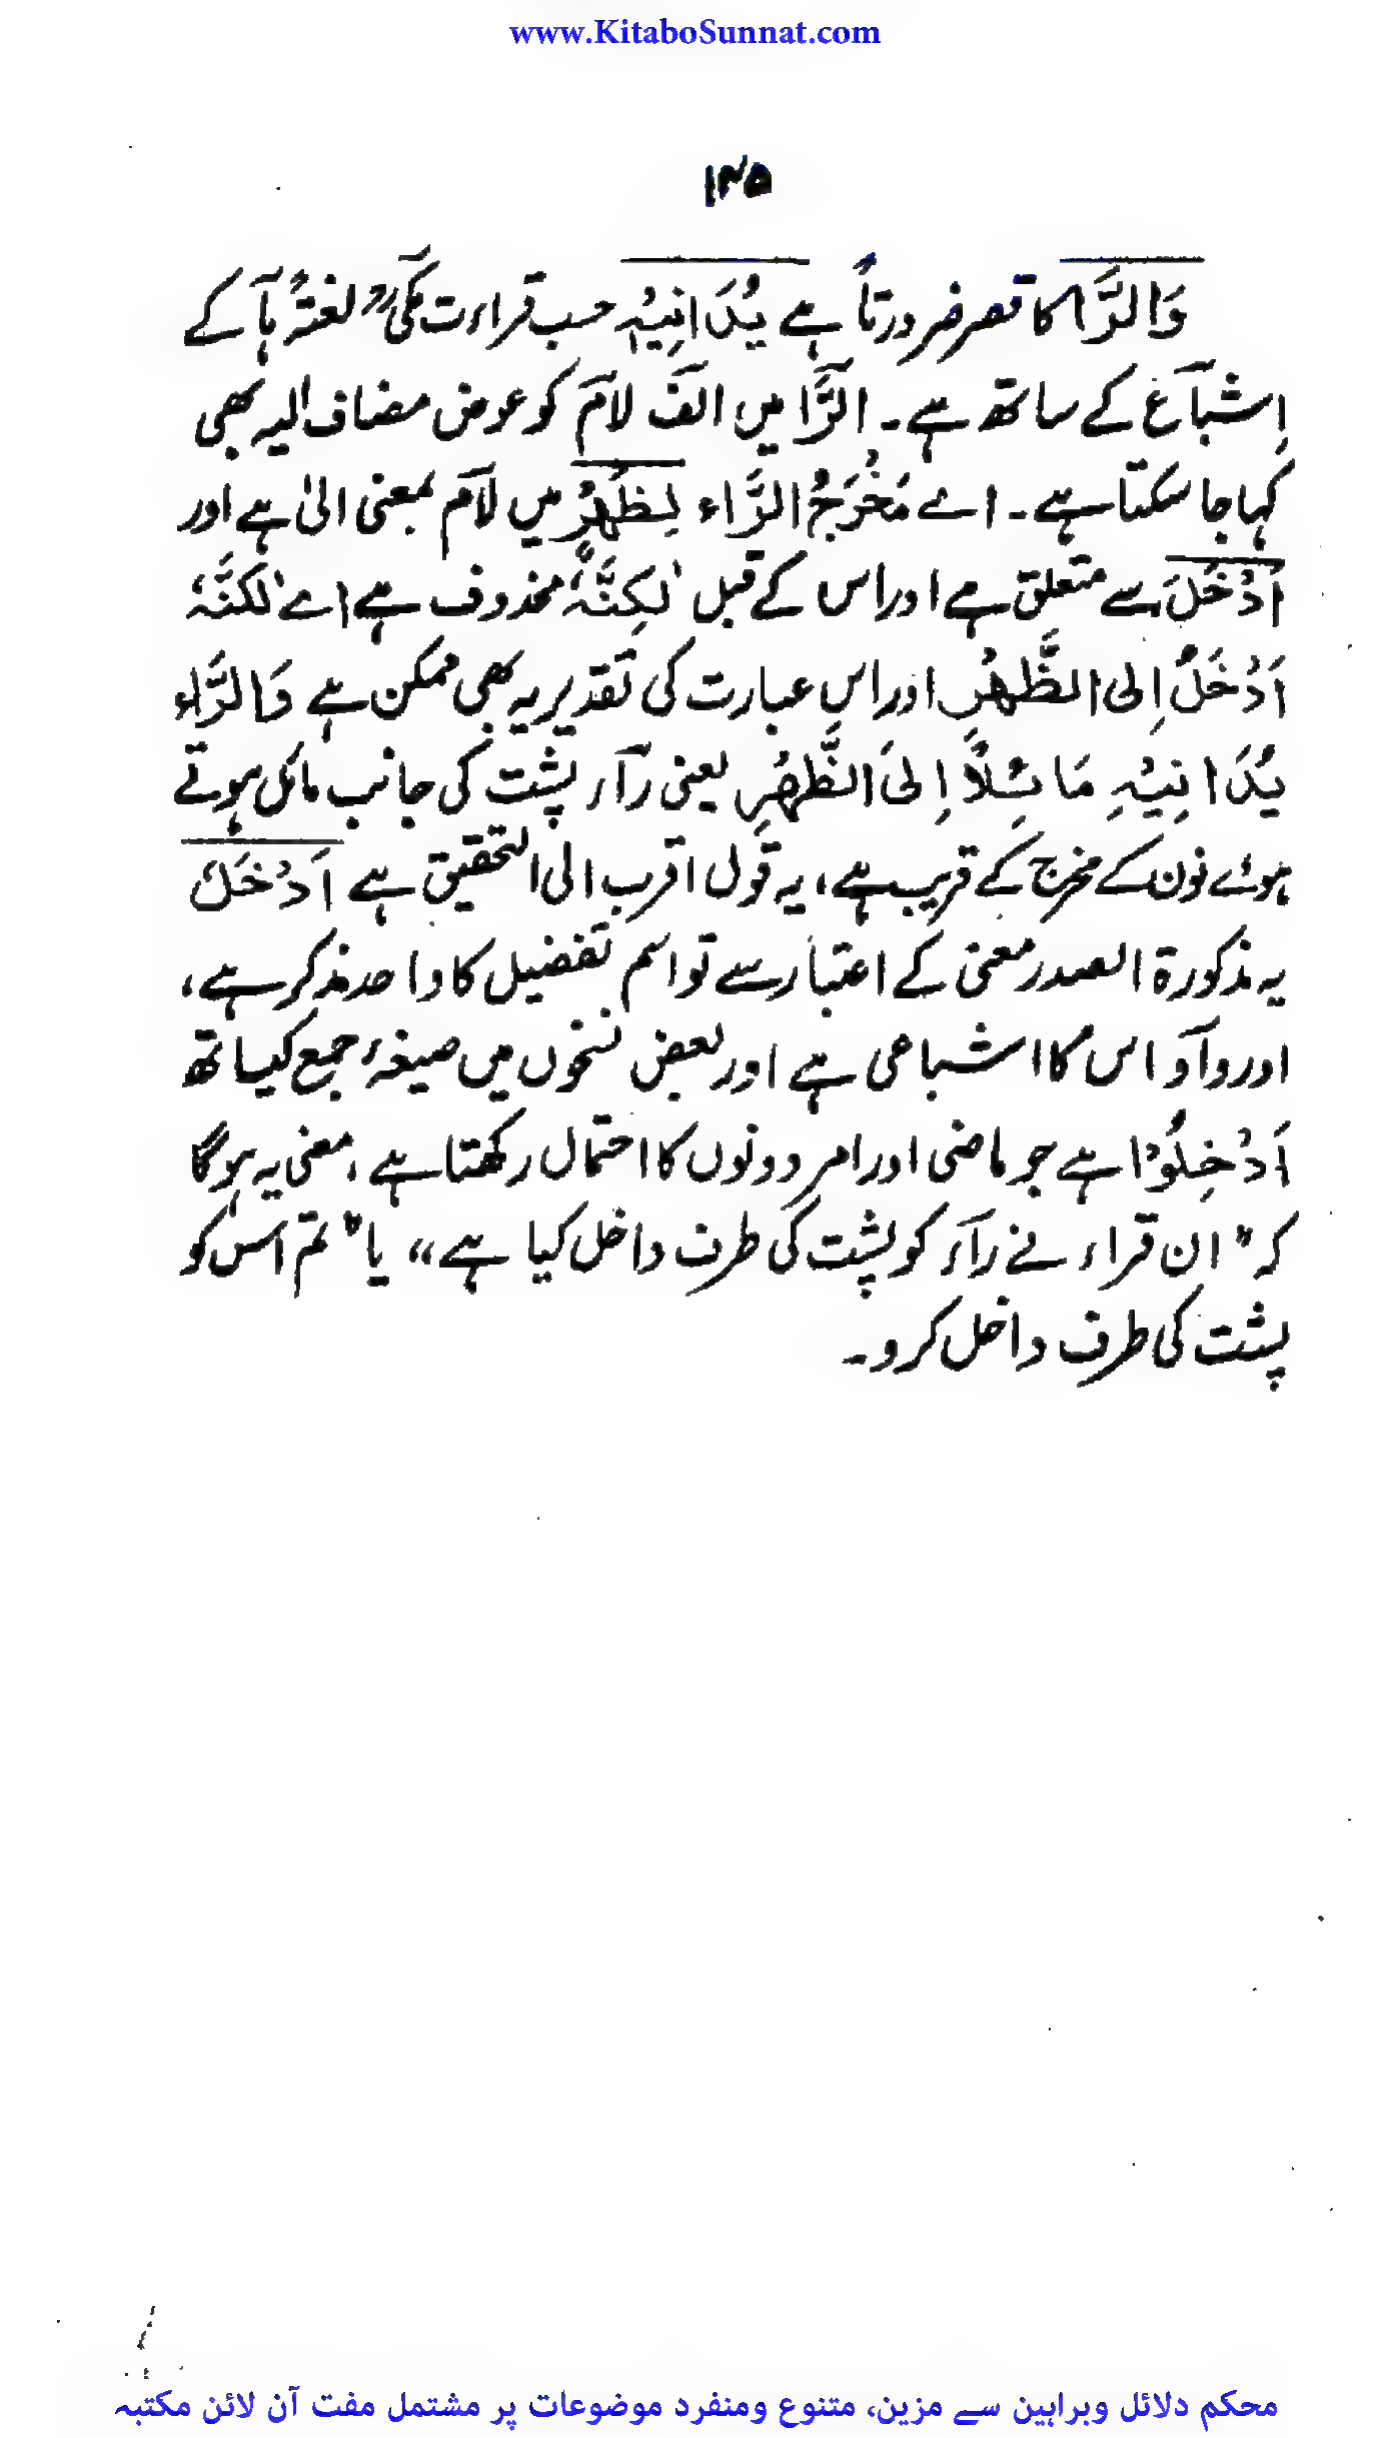 www.KitaboSunnat.com
۱۴۵
وَالرَّا کا قصر ضرورتاً ہے یُدَانِیْہِ حسب قراءت مکی" لغتہً ہآ کے
اِشبآع کے ساتھ ہے۔ الرَّا میں الفَ لآم کو عوض مضاف الیہ بھی
کہا جا سکتا ہے۔ اے مَخْرَجُ الرَّاء لِظَھْرٍ میں لآم بمعنی الیٰ ہے اور
اَدْخَلَ سے متعلق ہے اور اس کے قبل لٰکِنَّہٗ محذوف ہے اے لٰکنَّہٗ
اَدْخَلُ اِلی الظَّھْرِ اور اس عبارت کی تقدیر یہ بھی ممکن ہے وَالرَّاء
یُدَانِیْہِ مَائِلًا اِلیَ الظَّھْرِ یعنی رآء پشت کی جانب مائل ہوتے
ہوئے نون کے مخرج کے قریب ہے، یہ قول اقرب الی التحقیق ہے اَدْخَلُ
یہ مذکورۃ الصدر معنی کے اعتبار سے تو اسم تفضیل کا واحد مذکر ہے،
اور وآو اس کا اشباعی ہے اور بعض نسخوں میں صیغہٴ جمع کیساتھ
اَدْخِلُوْا ہے جو ماضی اور امر دونوں کا احتمال رکھتا ہے، معنی یہ ہوگا
کہ "ان قراء نے رآء کو پشت کی طرف داخل کیا ہے" یا "تم اس کو
پشت کی طرف داخل کرو۔
محکم دلائل وبراہین سے مزین، متنوع ومنفرد موضوعات پر مشتمل مفت آن لائن مکتبہ